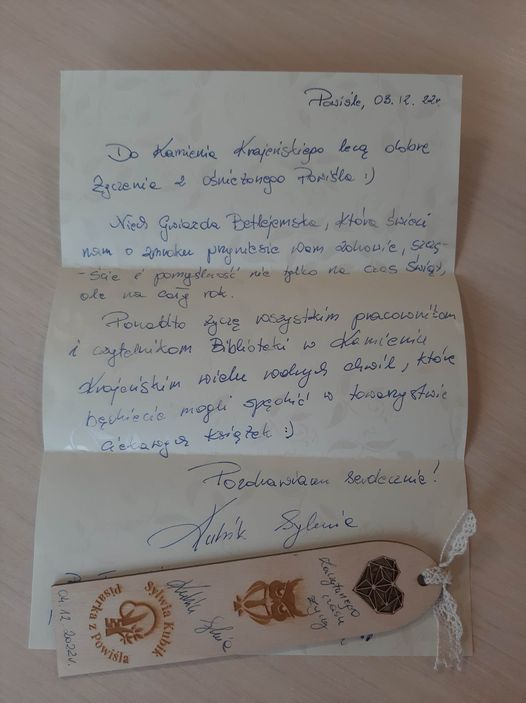 Powiśle, 03.12.22r.
Do Kamienia Krajeńskiego lecą dobre
życzenia z ośnieżonego Powiśla :)
Niech Gwiazda Betlejemska, która świeci
nam o zmroku przyniesie Wam zdrowie, szczę-
-ście i pomyślność nie tylko na czas Świąt,
ale na cały rok.
Ponadto życzę wszystkim pracownikom
i czytelnikom Biblioteki w Kamieniu
Krajeńskim wielu radosnych chwil, które
będziecie mogli spędzić w towarzystwie
ciekawych książek :)
Pozdrawiam serdecznie!
Kubik Sylwia
04.12.2022r.
Sylwia Kubik
pisarka z Powiśla
Kubik Sylwia
Zaczytanego
czasu
życzy